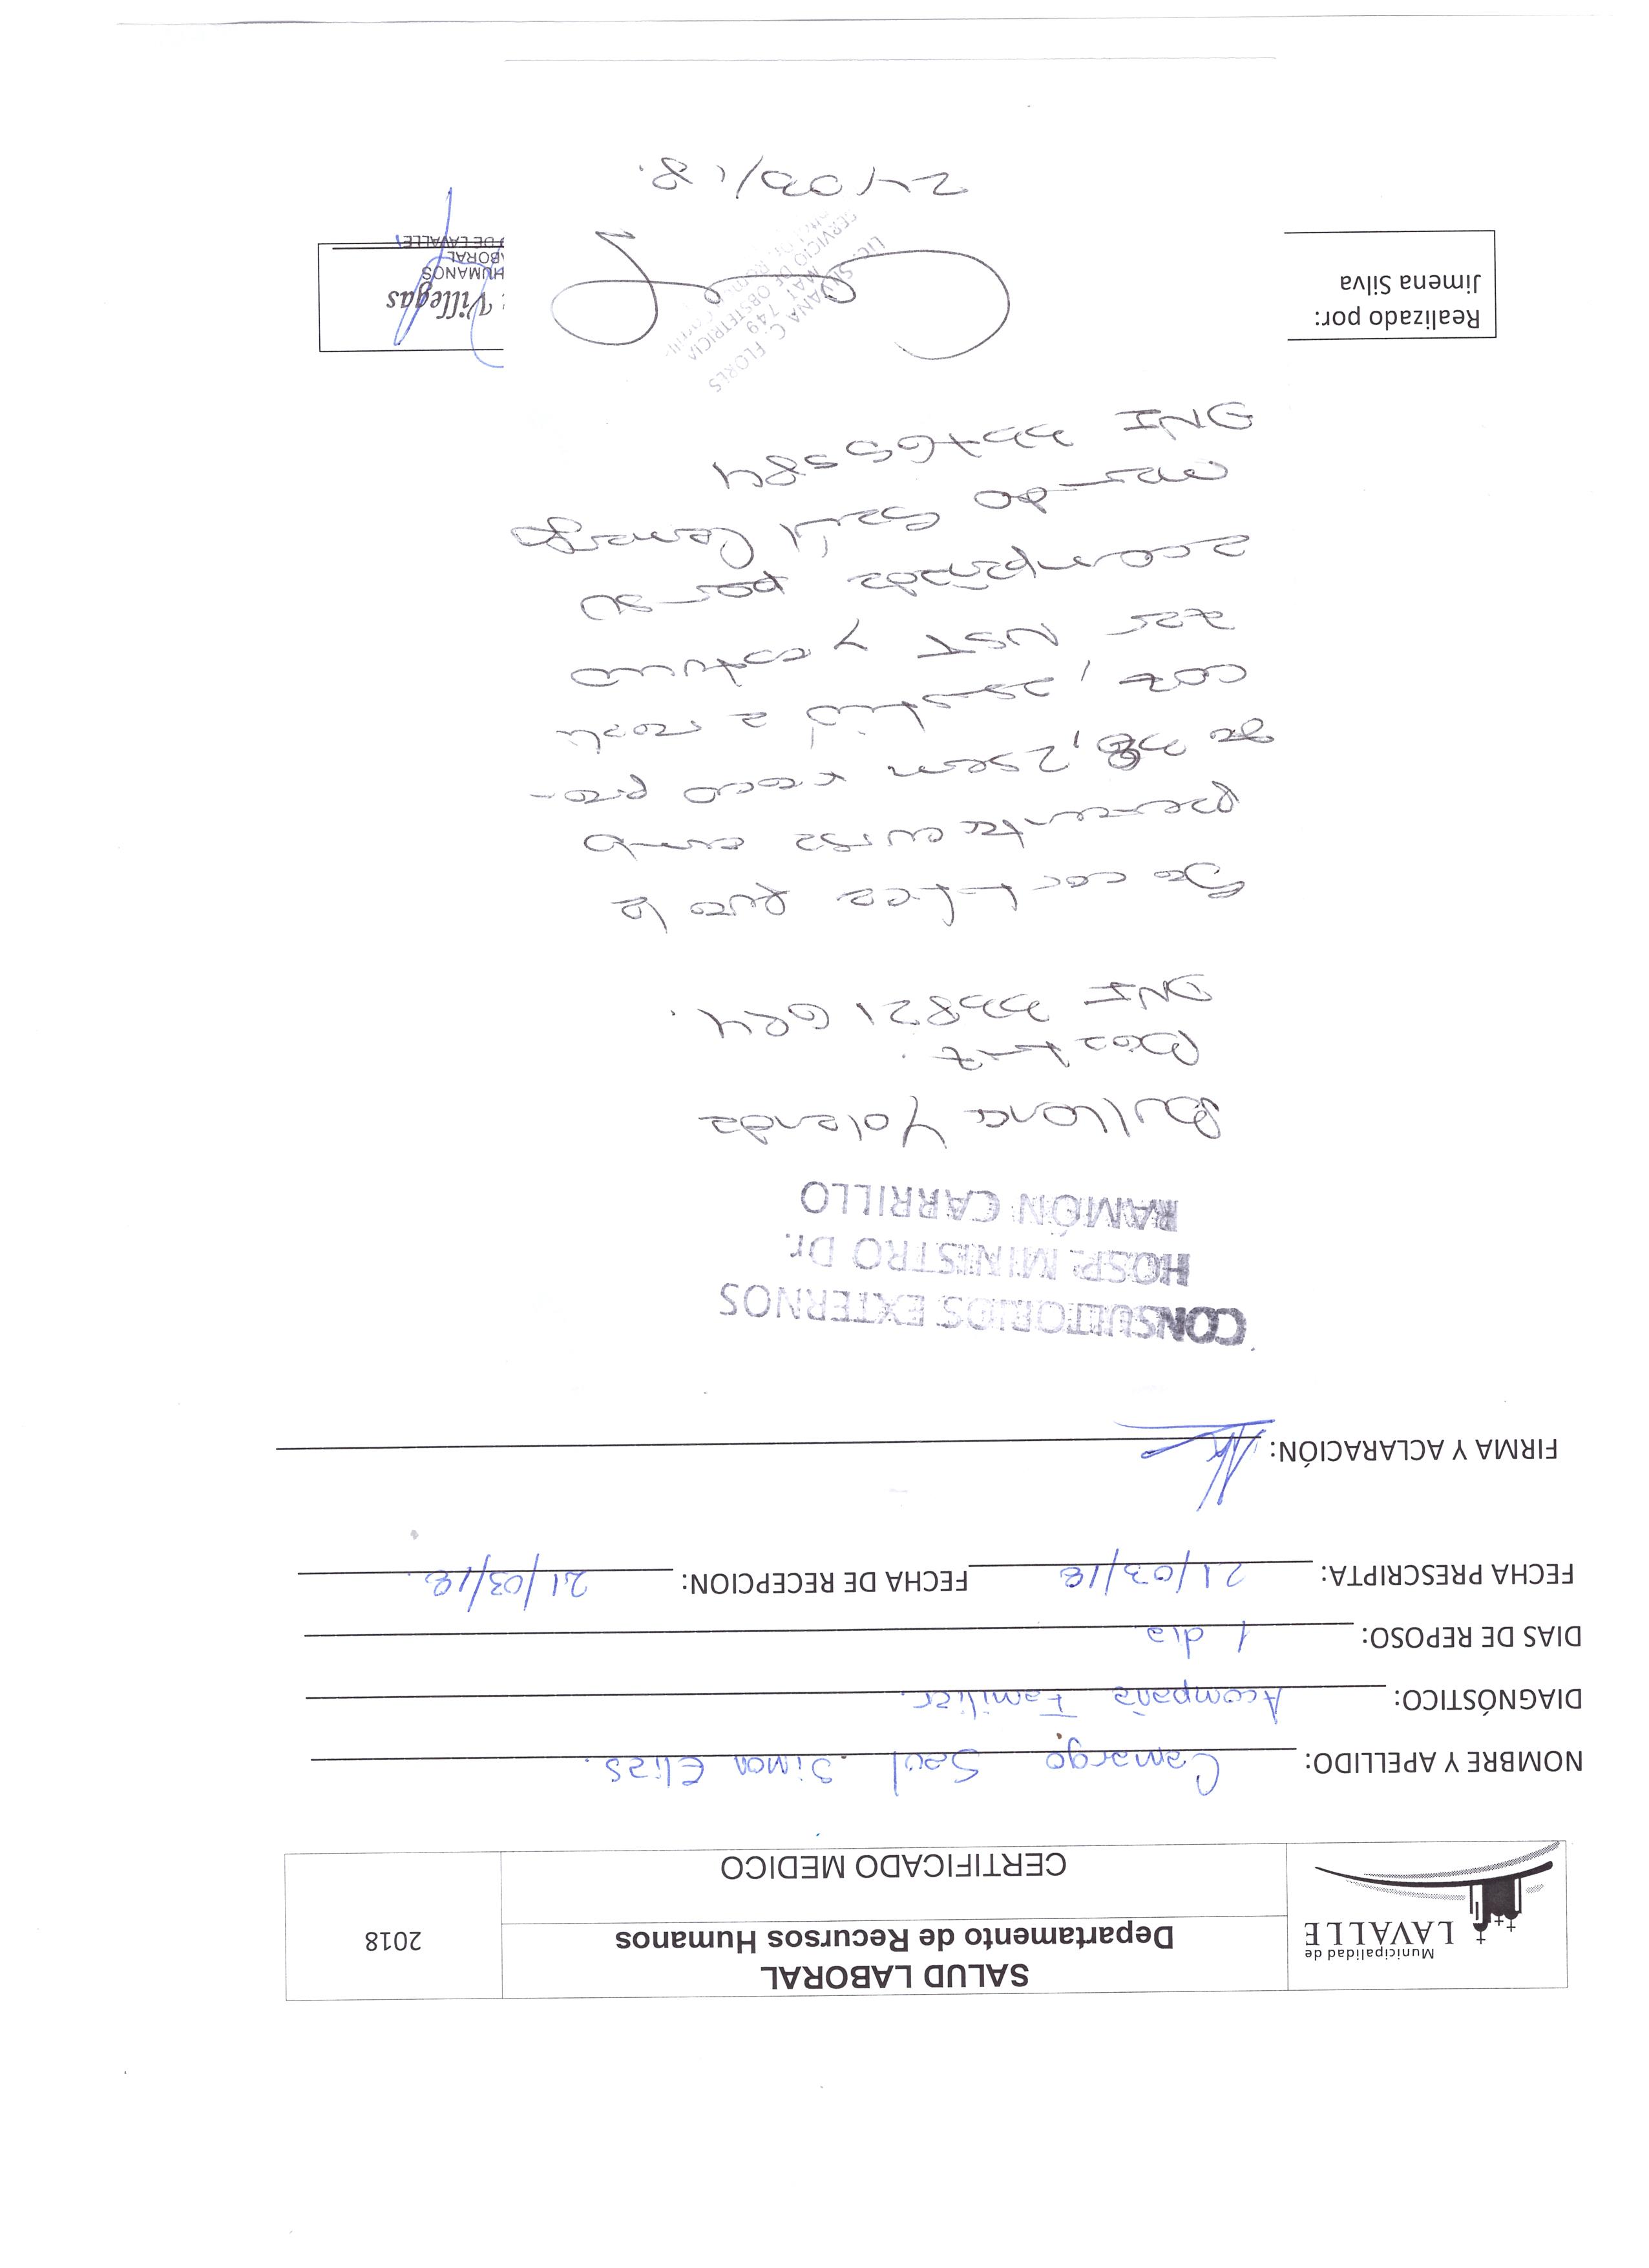 Municipalidad de
LAVALLE
SALUD LABORAL
Departamento de Recursos Humanos
CERTIFICADO MEDICO
2018
NOMBRE Y APELLIDO: Camargo Saul Simon Elias.
DIAGNÓSTICO: Acompaña Familiar.
DIAS DE REPOSO: 1 dia
FECHA PRESCRIPTA: 21/03/18 FECHA DE RECEPCION: 21/03/18.
FIRMA Y ACLARACIÓN:
CONSULTORIOS EXTERNOS
HOSP. MINISTRO Dr.
RAMÓN CARRILLO
Yolanda
DNI 33821684.
Se certifica que la
paciente cursa emb
de 38,2 sem x eco
asistió a reali
zar NST y estuvo
acompañada por su
marido Saúl Camargo
DNI 33765584
LIC. SILVANA C. FLORES
MAT 749
SERVICIO DE OBSTETRICIA
Realizado por:
Jimena Silva
Villegas
HUMANOS
BORAL
DE LAVALLE